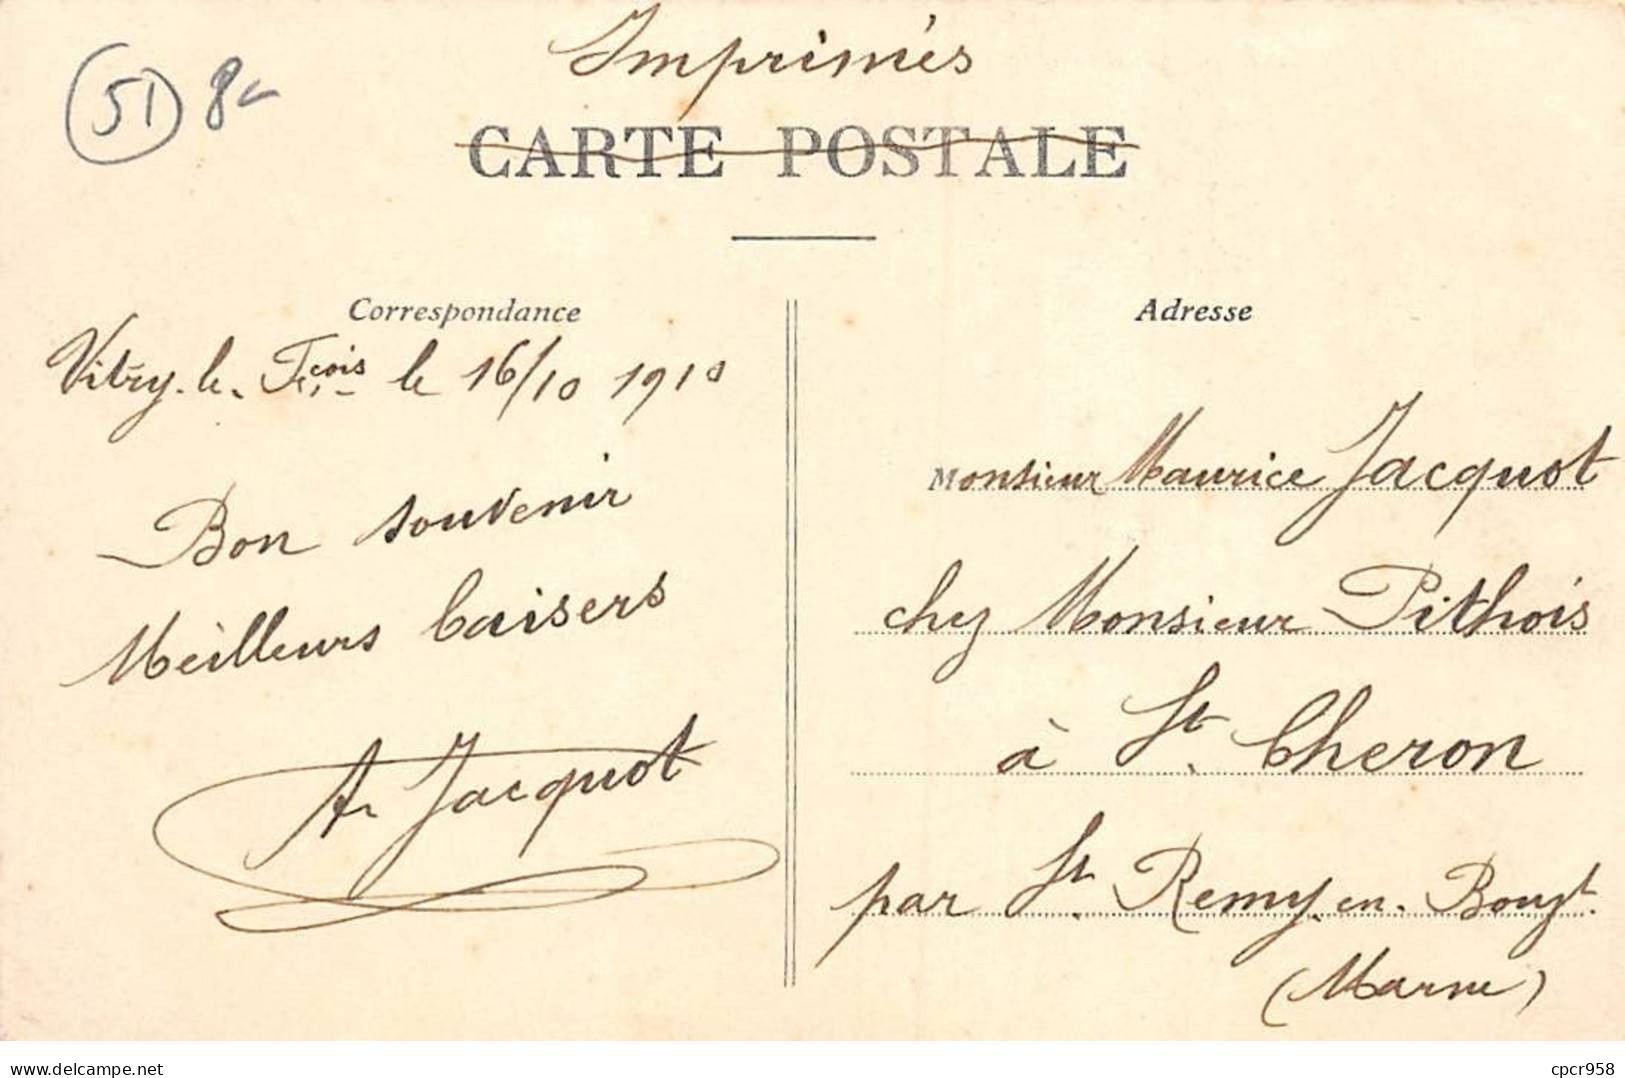 Imprimés
51 8-
CARTE POSTALE
Correspondance
Vitry-le-Fçois le 16/10 1910
Bon souvenir
Meilleurs baisers
A Jacquot
Adresse
Monsieur Maurice Jacquot
chez Monsieur Pithois
à St. Cheron
par St. Remy-en-Bouzt.
(Marne)
www.delcampe.net
cpcr958